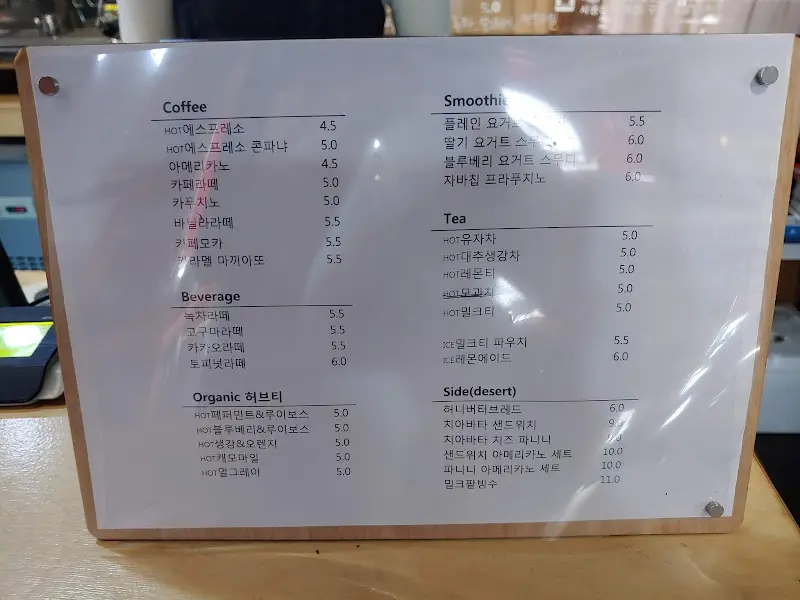 Coffee
HOT에스프레소 4.5
HOT에스프레소 콘파냐 5.0
아메리카노 4.5
카페라떼 5.0
카푸치노 5.0
바닐라라떼 5.5
카페모카 5.5
카라멜 마끼아또 5.5
Beverage
녹차라떼 5.5
고구마라떼 5.5
카카오라떼 5.5
토피넛라떼 6.0
Organic 허브티
HOT페퍼민트&루이보스 5.0
HOT블루베리&루이보스 5.0
HOT생강&오렌지 5.0
HOT캐모마일 5.0
HOT얼그레이 5.0
Smoothie
플레인 요거트 5.5
딸기 요거트 스무디 6.0
블루베리 요거트 스무디 6.0
자바칩 프라푸치노 6.0
Tea
HOT유자차 5.0
HOT대추생강차 5.0
HOT레몬티 5.0
HOT모과차 5.0
HOT밀크티 5.0
ICE밀크티 파우치 5.5
ICE레몬에이드 6.0
Side(desert)
허니버터브레드 6.0
치아바타 샌드위치
치아바타 치즈 파니니
샌드위치 아메리카노 세트 10.0
파니니 아메리카노 세트 10.0
밀크팥빙수 11.0